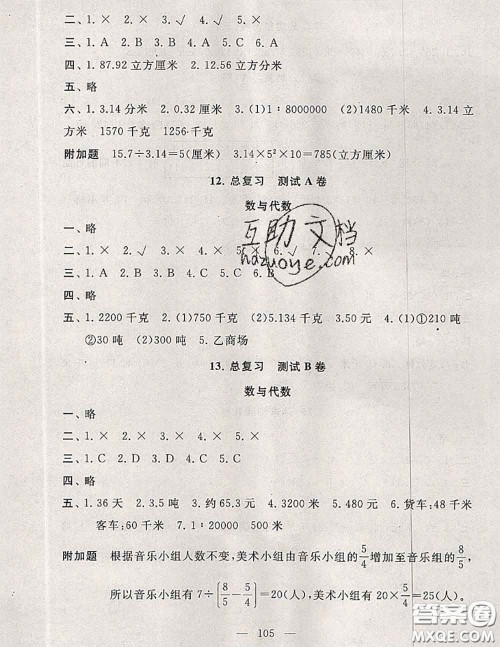 二、1.× 2.× 3.√ 4.√ 5.×
三、1.A 2.B 3.B 4.A 5.C 6.A
四、1.87.92立方厘米 2.12.56立方分米
五、略
六、1.3.14分米 2.0.32厘米 3.(1)1∶8000000 (2)1480千米 4.3.14立
方米 1570千克 1256千克
附加题 15.7÷3.14=5(厘米) 3.14×5²×10=785(立方厘米)
12. 总复习 测试A卷
数与代数
一、略
二、1.× 2.√ 3.× 4.× 5. 6.√ 7. 8.×
三、1.A 2.C 3.B 4.C 5.C
四、略
五、1.2200千克 2.(1)750千克 (2)5.134千克 3.50元 4.(1)①210吨
②30吨 (2)80吨 5.乙商场
互助文档
hazuoye.com
13. 总复习 测试B卷
数与代数
一、略
二、1.× 2.× 3.× 4.× 5.×
三、1.D 2.C 3.B 4.C 5.C
四、略
五、1.36天 2.3.5吨 3.约65.3元 4.3200米 5.480元 6.货车:48千米
客车:60千米 7.1∶20000 500米
附加题 根据音乐小组人数不变,美术小组由音乐小组的5/4增加至音乐组的8/5,
所以音乐小组有7÷[8/5-5/4]=20(人),美术小组有20×5/4=25(人)。
— 105 —
答案圈
MXQE.COM